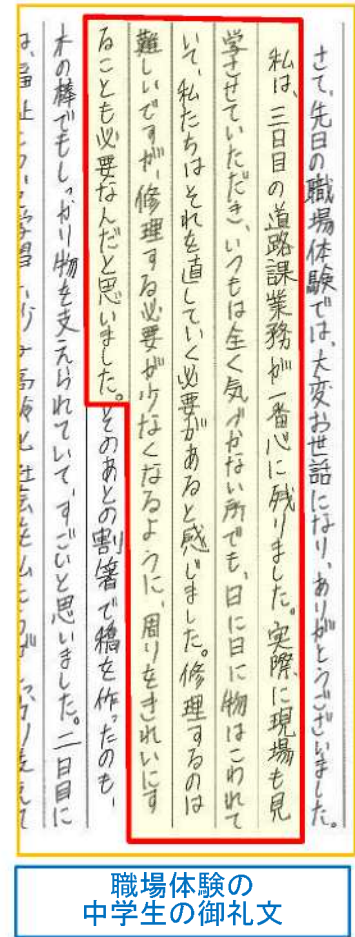 さて、先日の職場体験では、大変お世話になり、ありがとうございました。
私は、三日目の道路課業務が一番心に残りました。実際に現場も見
学させていただき、いつもは全く気づかない所でも、日に日に物はこわれて
いて、私たちはそれを直していく必要があると感じました。修理するのは
難しいですが、修理する必要が少なくなるように、周りをきれいにす
ることも必要なんだと思いました。そのあとの割箸で橋を作ったのも、
木の棒でもしっかり物を支えられていて、すごいと思いました。二日目に
職場体験の
中学生の御礼文